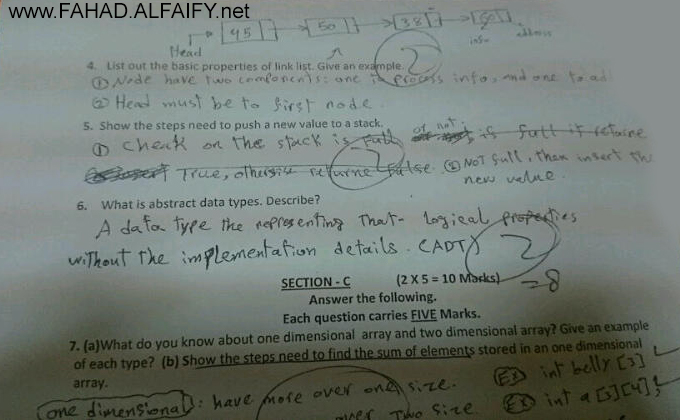 www.FAHAD.ALFAIFY.net
45 50 38 60
Head info address
4. List out the basic properties of link list. Give an example.
① Node have two components: one is process info, and one to ad
② Head must be to first node.
2
5. Show the steps need to push a new value to a stack.
① check on the stack is full or not: if full it retarne
True, otherwise returne false. ② NOT full, then insert the
new value.
2
6. What is abstract data types. Describe?
A data type the representing That- logical properties
without the implementation details. (ADT)
2
=8
SECTION - C (2 X 5 = 10 Marks)
Answer the following.
Each question carries FIVE Marks.
7. (a)What do you know about one dimensional array and two dimensional array? Give an example
of each type? (b) Show the steps need to find the sum of elements stored in an one dimensional
array.
one dimensional: have more over one size. Ex int belly [3]
over Two size Ex int a [3][4];